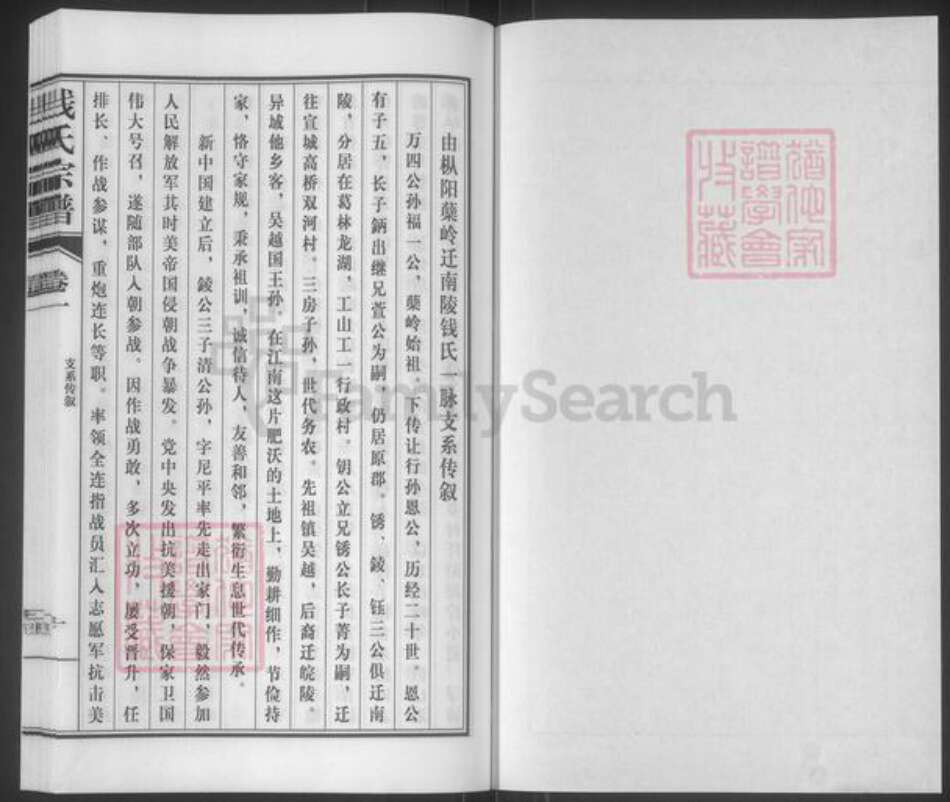 由枞阳蘽岭迁南陵钱氏一脉支系传叙
万四公孙福一公，蘽岭始祖。下传让行孙恩公，历经二十世。恩公
有子五，长子鈵出继兄萱公为嗣，仍居原郡。锈、錂、钰三公俱迁南
陵，分居在葛林龙湖，工山工一行政村。钥公立兄锈公长子菁为嗣，迁
往宣城高桥双河村。三房子孙，世代务农。先祖镇吴越，后裔迁皖陵。
异域他乡客，吴越国王孙。在江南这片肥沃的土地上，勤耕细作，节俭持
家，恪守家规，秉承祖训，诚信待人，友善和邻，繁衍生息世代传承。
新中国建立后，錂公三子清公孙，字尼平率先走出家门，毅然参加
人民解放军其时美帝国侵朝战争暴发。党中央发出抗美援朝，保家卫国
伟大号召，遂随部队入朝参战。因作战勇敢，多次立功，屡受晋升，任
排长、作战参谋，重炮连长等职。率领全连指战员汇入志愿军抗击美
钱氏宗谱
卷一
支系传叙
犹他家
谱学会
收藏
FamilySearch